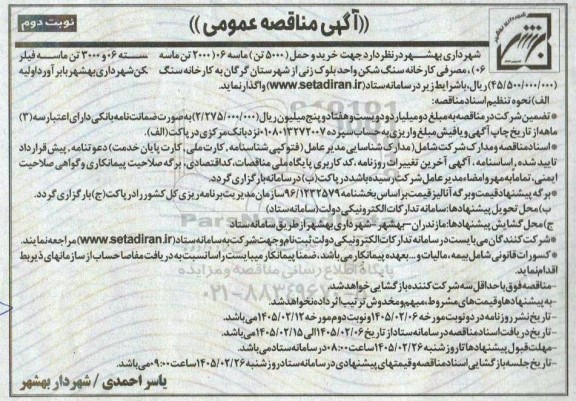 ((آگهی مناقصه عمومی))
نوبت دوم
شهرداری بهشهر در نظر دارد جهت خرید و حمل (۵۰۰۰ تن) ماسه ۰۶ (۲۰۰۰ تن ماسه شسته ۰۶ و ۳۰۰۰ تن ماسه فیلر
۰۶)، مصرفی کارخانه سنگ شکن واحد بلوک زنی از شهرستان گرگان به کارخانه سنگ شکن شهرداری بهشهر با برآورد اولیه
(۴۵/۵۰۰/۰۰۰/۰۰۰) ریال، با شرایط زیر در سامانه ستاد (www.setadiran.ir) واگذار نماید.
الف) نحوه تنظیم اسناد مناقصه:
*تضمین شرکت در مناقصه به مبلغ دو میلیارد و دویست و هفتاد و پنج میلیون ریال (۲/۲۷۵/۰۰۰/۰۰۰) به صورت ضمانت نامه بانکی دارای اعتبار سه (۳)
ماهه از تاریخ چاپ آگهی و یا فیش مبلغ واریزی به حساب سپرده ۰۱۰۸۰۱۳۲۷۲۰۰۷ نزد بانک مرکزی در پاکت (الف).
*اسناد مناقصه و مدارک شرکت شامل (مدارک شناسایی مدیر عامل (فتوکپی شناسنامه، کارت ملی، کارت پایان خدمت) دعوتنامه، پیش قرارداد
تایید شده، اساسنامه، آگهی آخرین تغییرات روزنامه، کد کاربری پایگاه ملی مناقصات، کد اقتصادی، برگه صلاحیت پیمانکاری و گواهی صلاحیت
ایمنی، تماما به مهر و امضاء مدیر عامل شرکت رسیده باشد در پاکت (ب) در سامانه بارگزاری گردد.
*برگه پیشنهاد قیمت و برگه آنالیز قیمت بر اساس بخشنامه ۹۶/۱۲۳۲۵۷۹ سازمان مدیریت برنامه ریزی کل کشور را در پاکت (ج) بارگزاری گردد.
ب) محل تحویل پیشنهادها: سامانه تدارکات الکترونیکی دولت (سامانه ستاد)
ج) محل گشایش پیشنهادها: مازندران - بهشهر - شهرداری بهشهر از طریق سامانه ستاد
*شرکت کنندگان می بایست در سامانه تدارکات الکترونیکی دولت ثبت نام و جهت شرکت به سامانه ستاد (www.setadiran.ir) مراجعه نمایند.
*کسورات قانونی شامل بیمه، مالیات و... بعهده پیمانکار می باشد، ضمنا پیمانکار میبایست راسا نسبت به دریافت مفاصا حساب از سازمانهای ذیربط
اقدام نماید.
-مناقصه فوق با حداقل سه شرکت کننده بازگشایی خواهد شد.
-به پیشنهادها و قیمت های مشروط، مبهم و مخدوش ترتیب اثر داده نخواهد شد.
-تاریخ نشر روزنامه در دو نوبت مورخه ۱۴۰۵/۰۲/۰۶ و نوبت دوم مورخه ۱۴۰۵/۰۲/۱۲ می باشد.
-تاریخ دریافت اسناد مناقصه در سامانه ستاد از تاریخ ۱۴۰۵/۰۲/۰۶ الی ۱۴۰۵/۰۲/۱۵ می باشد.
-مهلت قبول پیشنهادها تا روز شنبه ۱۴۰۵/۰۲/۲۶ ساعت ۰۸:۰۰ در سامانه ستاد می باشد.
-تاریخ جلسه بازگشایی اسناد مناقصه و قیمتهای پیشنهادی در سامانه ستاد روز شنبه ۱۴۰۵/۰۲/۲۶ ساعت ۰۹:۰۰ می باشد.
یاسر احمدی / شهردار بهشهر
پایگاه اطلاع رسانی مناقصه و مزایده